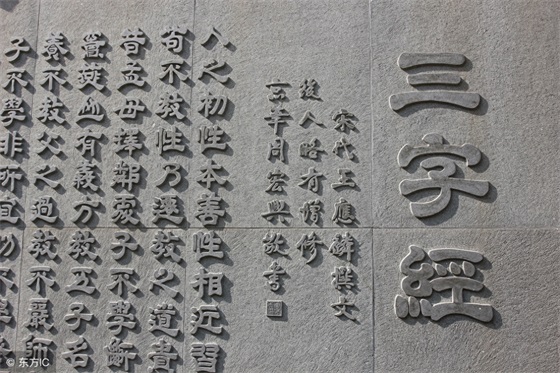 三字經
宋代王應麟撰文
後人略有增修
玄華周宏興敬書
人之初性本善性相近習
苟不教性乃遷教之道貴
昔孟母擇鄰處子不學斷
竇燕山有義方教五子名
養不教父之過教不嚴師
子不學非所宜幼不學
© 东方IC